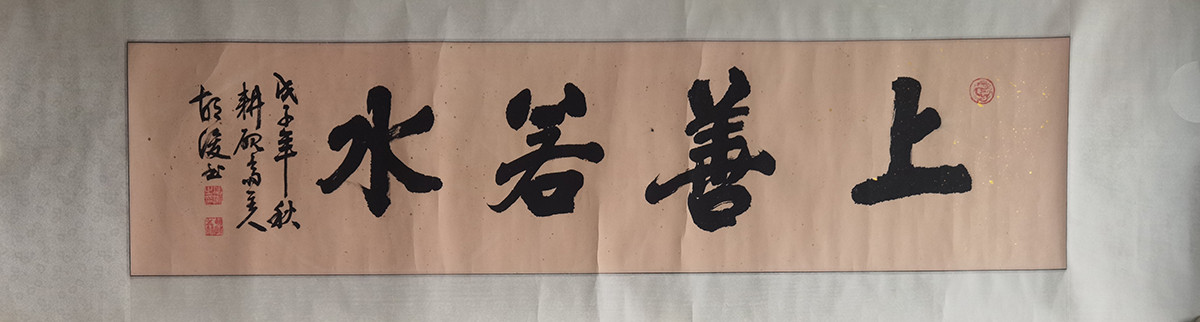 上善若水
戊子年秋
耕砚斋主人
胡俊书